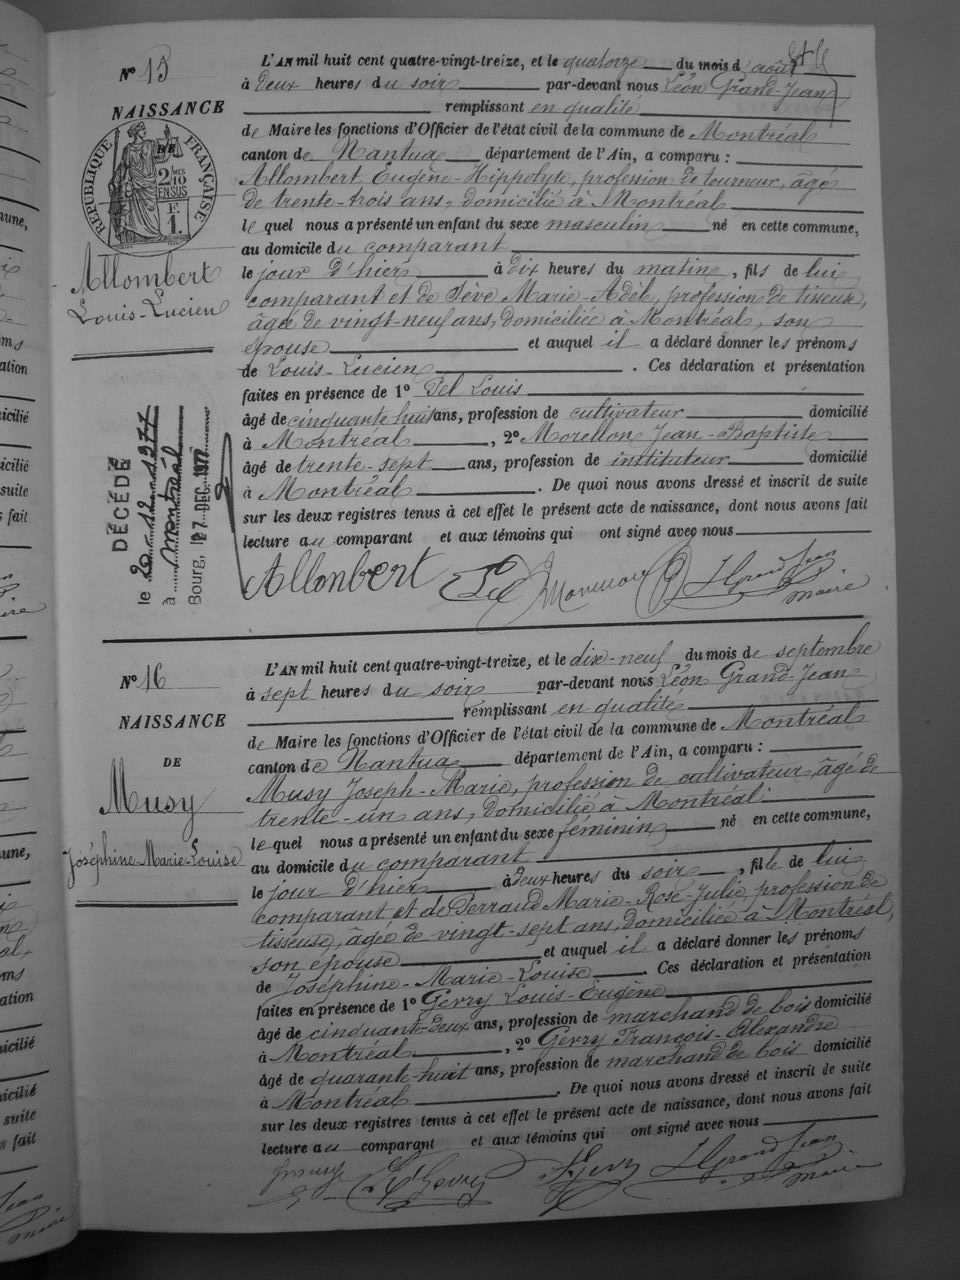 Nº 15
NAISSANCE
DE
RÉPUBLIQUE FRANÇAISE
2/10 EN SUS
F. 1.
Allombert
Louis-Lucien
DÉCÉDÉ
le 2-12-1977
à Montréal
Bourg, le 7 DEC. 1977
L'AN mil huit cent quatre-vingt-treize, et le quatorze du mois d'août
à deux heures du soir par-devant nous Léon Grand-Jean
remplissant en qualité
de Maire les fonctions d'Officier de l'état civil de la commune de Montréal
canton de Nantua département de l'Ain, a comparu :
Allombert, Eugène-Hippolyte, profession de tourneur, âgé
de trente-trois ans, domicilié à Montréal
le quel nous a présenté un enfant du sexe masculin né en cette commune,
au domicile du comparant
le jour d'hier à dix heures du matin, fils de lui
comparant et de Sève Marie-Adèle, profession de tisseuse,
âgée de vingt-neuf ans, domiciliée à Montréal, son
épouse et auquel il a déclaré donner les prénoms
de Louis-Lucien. Ces déclaration et présentation
faites en présence de 1º Pel Louis
âgé de cinquante huit ans, profession de cultivateur domicilié
à Montréal, 2º Morellon Jean-Baptiste
âgé de trente-sept ans, profession de instituteur domicilié
à Montréal. De quoi nous avons dressé et inscrit de suite
sur les deux registres tenus à cet effet le présent acte de naissance, dont nous avons fait
lecture au comparant et aux témoins qui ont signé avec nous
Allombert L. Grand Jean
maire
Nº 16
NAISSANCE
DE
Musy
Joséphine-Marie-Louise
L'AN mil huit cent quatre-vingt-treize, et le dix-neuf du mois de septembre
à sept heures du soir par-devant nous Léon Grand-Jean
remplissant en qualité
de Maire les fonctions d'Officier de l'état civil de la commune de Montréal
canton de Nantua département de l'Ain, a comparu :
Musy Joseph-Marie, profession de cultivateur, âgé de
trente-un ans, domicilié à Montréal
le quel nous a présenté un enfant du sexe féminin né en cette commune,
au domicile du comparant
le jour d'hier à deux heures du soir, fille de lui
comparant et de Perraud Marie-Rose-Julie, profession de
tisseuse, âgée de vingt-sept ans, domiciliée à Montréal,
son épouse et auquel il a déclaré donner les prénoms
de Joséphine-Marie-Louise. Ces déclaration et présentation
faites en présence de 1º Gevry Louis-Eugène
âgé de cinquante-deux ans, profession de marchand de bois domicilié
à Montréal, 2º Gevry François-Alexandre
âgé de quarante-huit ans, profession de marchand de bois domicilié
à Montréal. De quoi nous avons dressé et inscrit de suite
sur les deux registres tenus à cet effet le présent acte de naissance, dont nous avons fait
lecture au comparant et aux témoins qui ont signé avec nous
Musy Gevry Gevry L. Grand Jean
maire